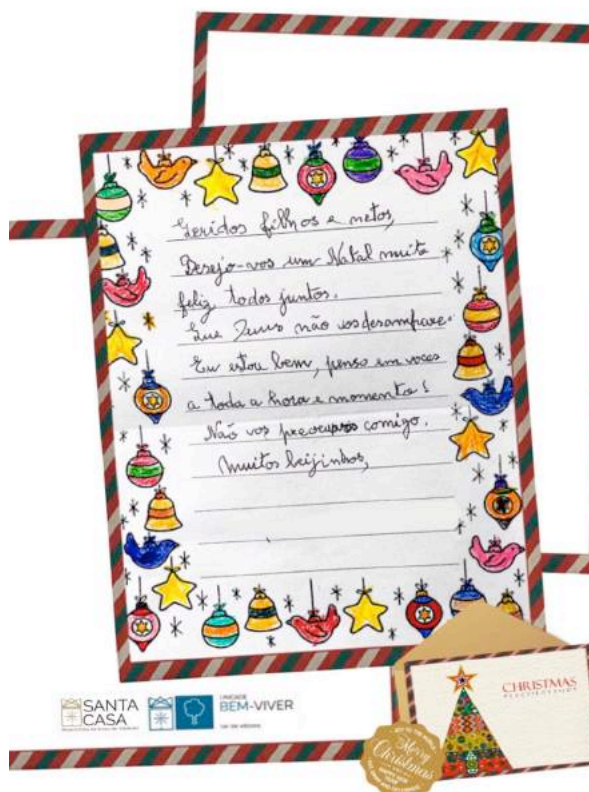 Queridos filhos e netos,
Desejo-vos um Natal muito
feliz, todos juntos.
Que Jesus não vos desampare.
Eu estou bem, penso em voces
a toda a hora e momento!
Não vos preocupes comigo.
Muitos beijinhos,
SANTA
CASA
UNIDADE
BEM-VIVER
CHRISTMAS
Merry
Christmas